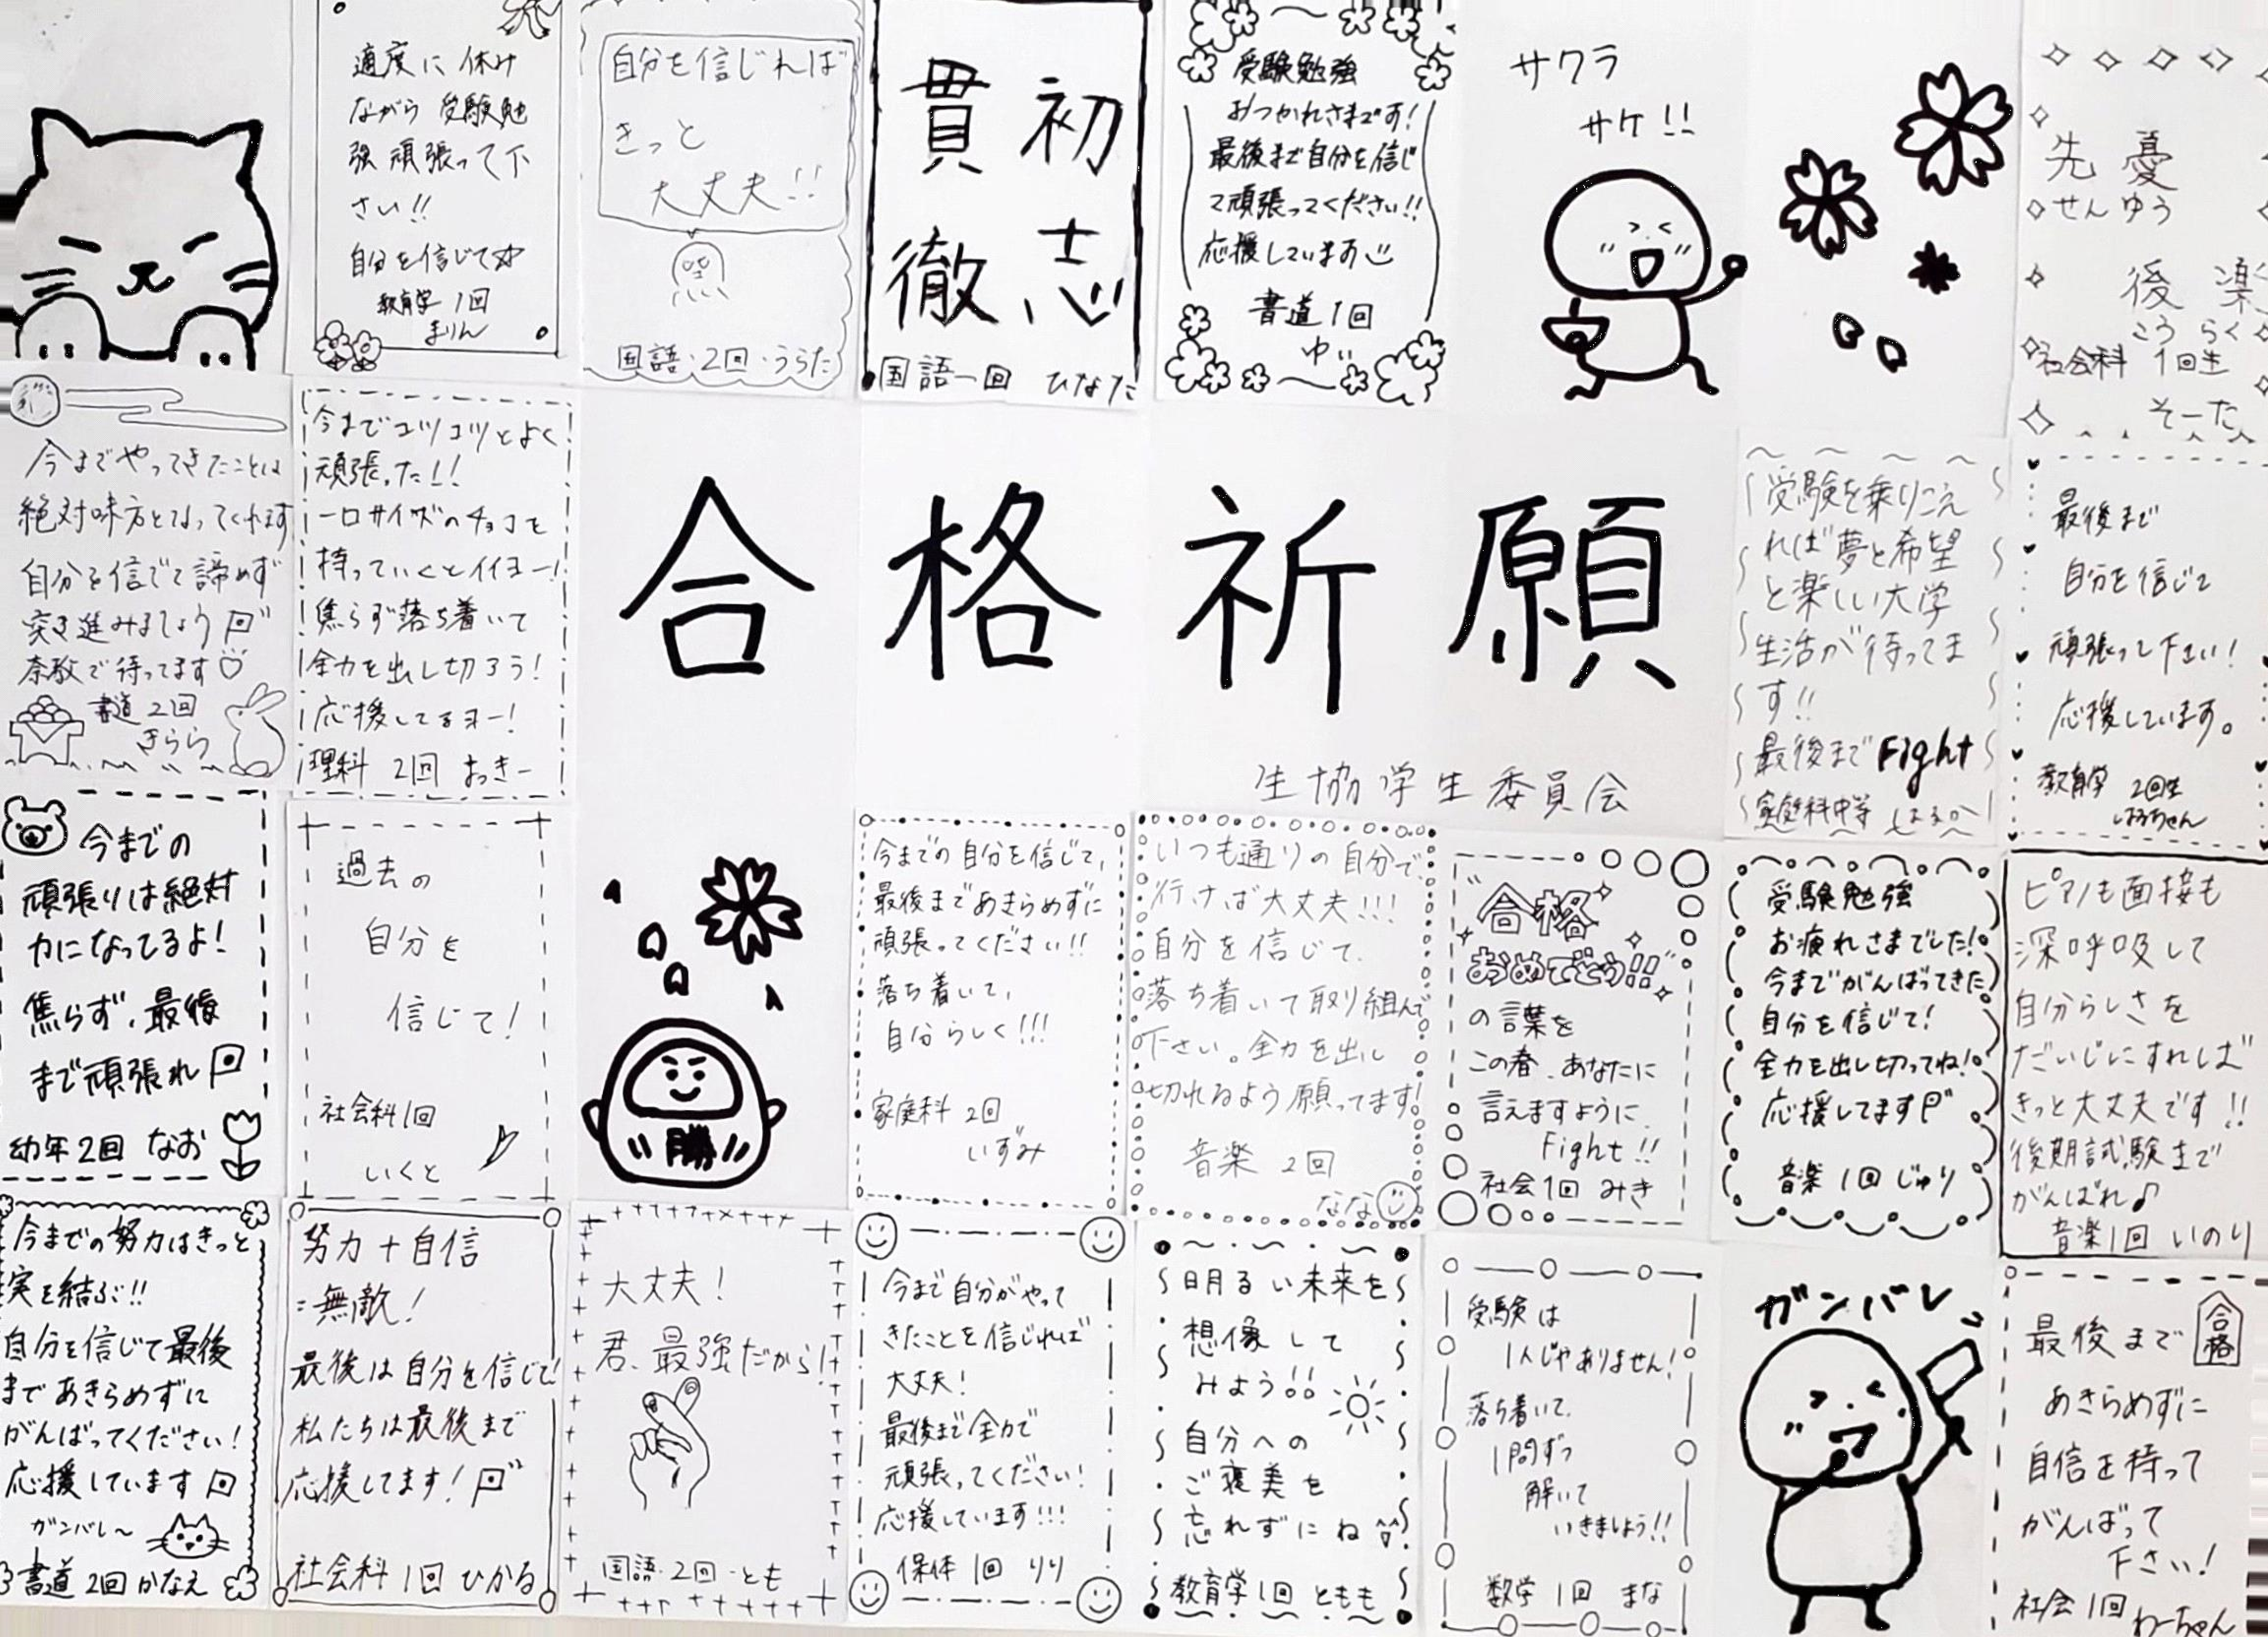 適度に休み
ながら受験勉
強頑張って下
さい!!
自分を信じて☆
教育学1回
まりん
自分を信じれば
きっと
大丈夫!!
国語・2回・うらた
初志
貫徹
国語一回 ひなた
受験勉強
おつかれさまです!
最後まで自分を信じ
て頑張ってください!!
応援しています
書道1回
ゆい
サクラ
サケ!!
先憂
せんゆう
後楽
こうらく
社会科 1回生
そーた
今までやってきたことは
絶対味方となってくれます
自分を信じて諦めず
突き進みましょう
奈教で待ってます♡
書道2回
きらら
今までコツコツとよく
頑張った!!
一口サイズのチョコを
持っていくとイイヨー!
焦らず落ち着いて
全力を出し切ろう!
応援してるヨー!
理科 2回 おっきー
合格祈願
生協学生委員会
受験を乗りこえ
れば夢と希望
と楽しい大学
生活が待ってま
す!!
最後までFight
家庭科中等
最後まで
自分を信じて
頑張って下さい!
応援しています。
教育学 2回生
はるちゃん
今までの
頑張りは絶対
力になってるよ!
焦らず、最後
まで頑張れ
幼年2回 なお
過去の
自分を
信じて!
社会科1回
いくと
勝
今までの自分を信じて、
最後まであきらめずに
頑張ってください!!
落ち着いて、
自分らしく!!!
家庭科 2回
いずみ
いつも通りの自分で、
行けば大丈夫!!!
自分を信じて、
落ち着いて取り組んで
下さい。全力を出し
切れるよう願ってます!
音楽 2回
なな
"合格
おめでとう!!"
の言葉を
この春、あなたに
言えますように、
Fight!!
社会1回 みき
受験勉強
お疲れさまでした!
今までがんばってきた
自分を信じて!
全力を出し切ってね!
応援してます
音楽 1回 じゅり
ピアノも面接も
深呼吸して
自分らしさを
だいじにすれば
きっと大丈夫です!!
後期試験まで
がんばれ♪
音楽1回 いのり
今までの努力はきっと
実を結ぶ!!
自分を信じて最後
まであきらめずに
がんばってください!
応援しています
ガンバレ~
書道 2回 かなえ
努力+自信
=無敵!
最後は自分を信じて!
私たちは最後まで
応援してます!
社会科 1回 ひかる
大丈夫!
君、最強だから!
国語・2回・とも
今まで自分がやって
きたことを信じれば
大丈夫!
最後まで全力で
頑張ってください!
応援しています!!!
保体 1回 りり
明るい未来を
想像して
みよう!!
自分への
ご褒美を
忘れずにね
教育学1回 ともも
受験は
1人じゃありません!
落ち着いて、
1問ずつ
解いて
いきましょう!!
数学 1回 まな
ガンバレ
合格
最後まで
あきらめずに
自信を持って
がんばって
下さい!
社会1回 わーちゃん